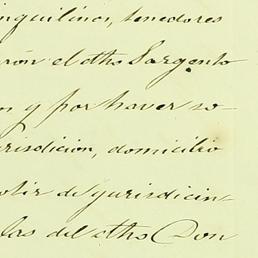 inquilinos, tenedores
rón el dho Sargento
n y por haver so
urisdicion, domicilio
de yurisdicin
las del dho Don